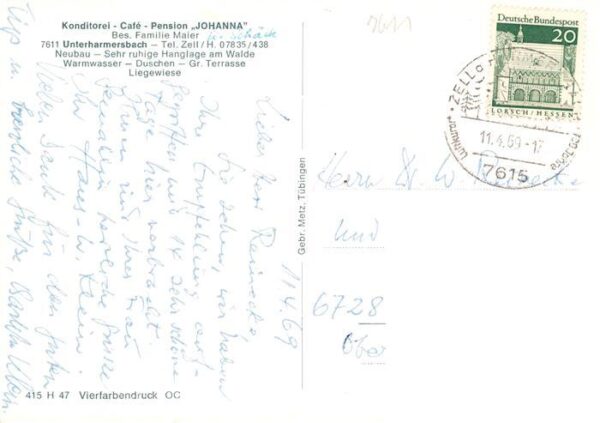 Konditorei - Café - Pension „JOHANNA"
Bes. Familie Maier
7611 Unterharmersbach — Tel. Zell/H. 07835/438
Neubau — Sehr ruhige Hanglage am Walde
Warmwasser — Duschen — Gr. Terrasse
Liegewiese
7611
Deutsche Bundespost
20
LORSCH/HESSEN
ZELL
11.4.69-17
7615
11.4.69
Lieber Herr Reinecke,
Sie sehen, wir haben
Ihre Empfehlung auf-
gegriffen und 14 sehr schöne
Tage hier verbracht.
Ihnen und Ihrer Frau
herzliche Grüsse
Ihr Hans-W. Klein
Vielen Dank für den guten
Tip u. herzliche Grüße,
Gebr. Metz, Tübingen
Herrn Dr. W. Reinecke
und
6728
Ober
415 H 47 Vierfarbendruck OC